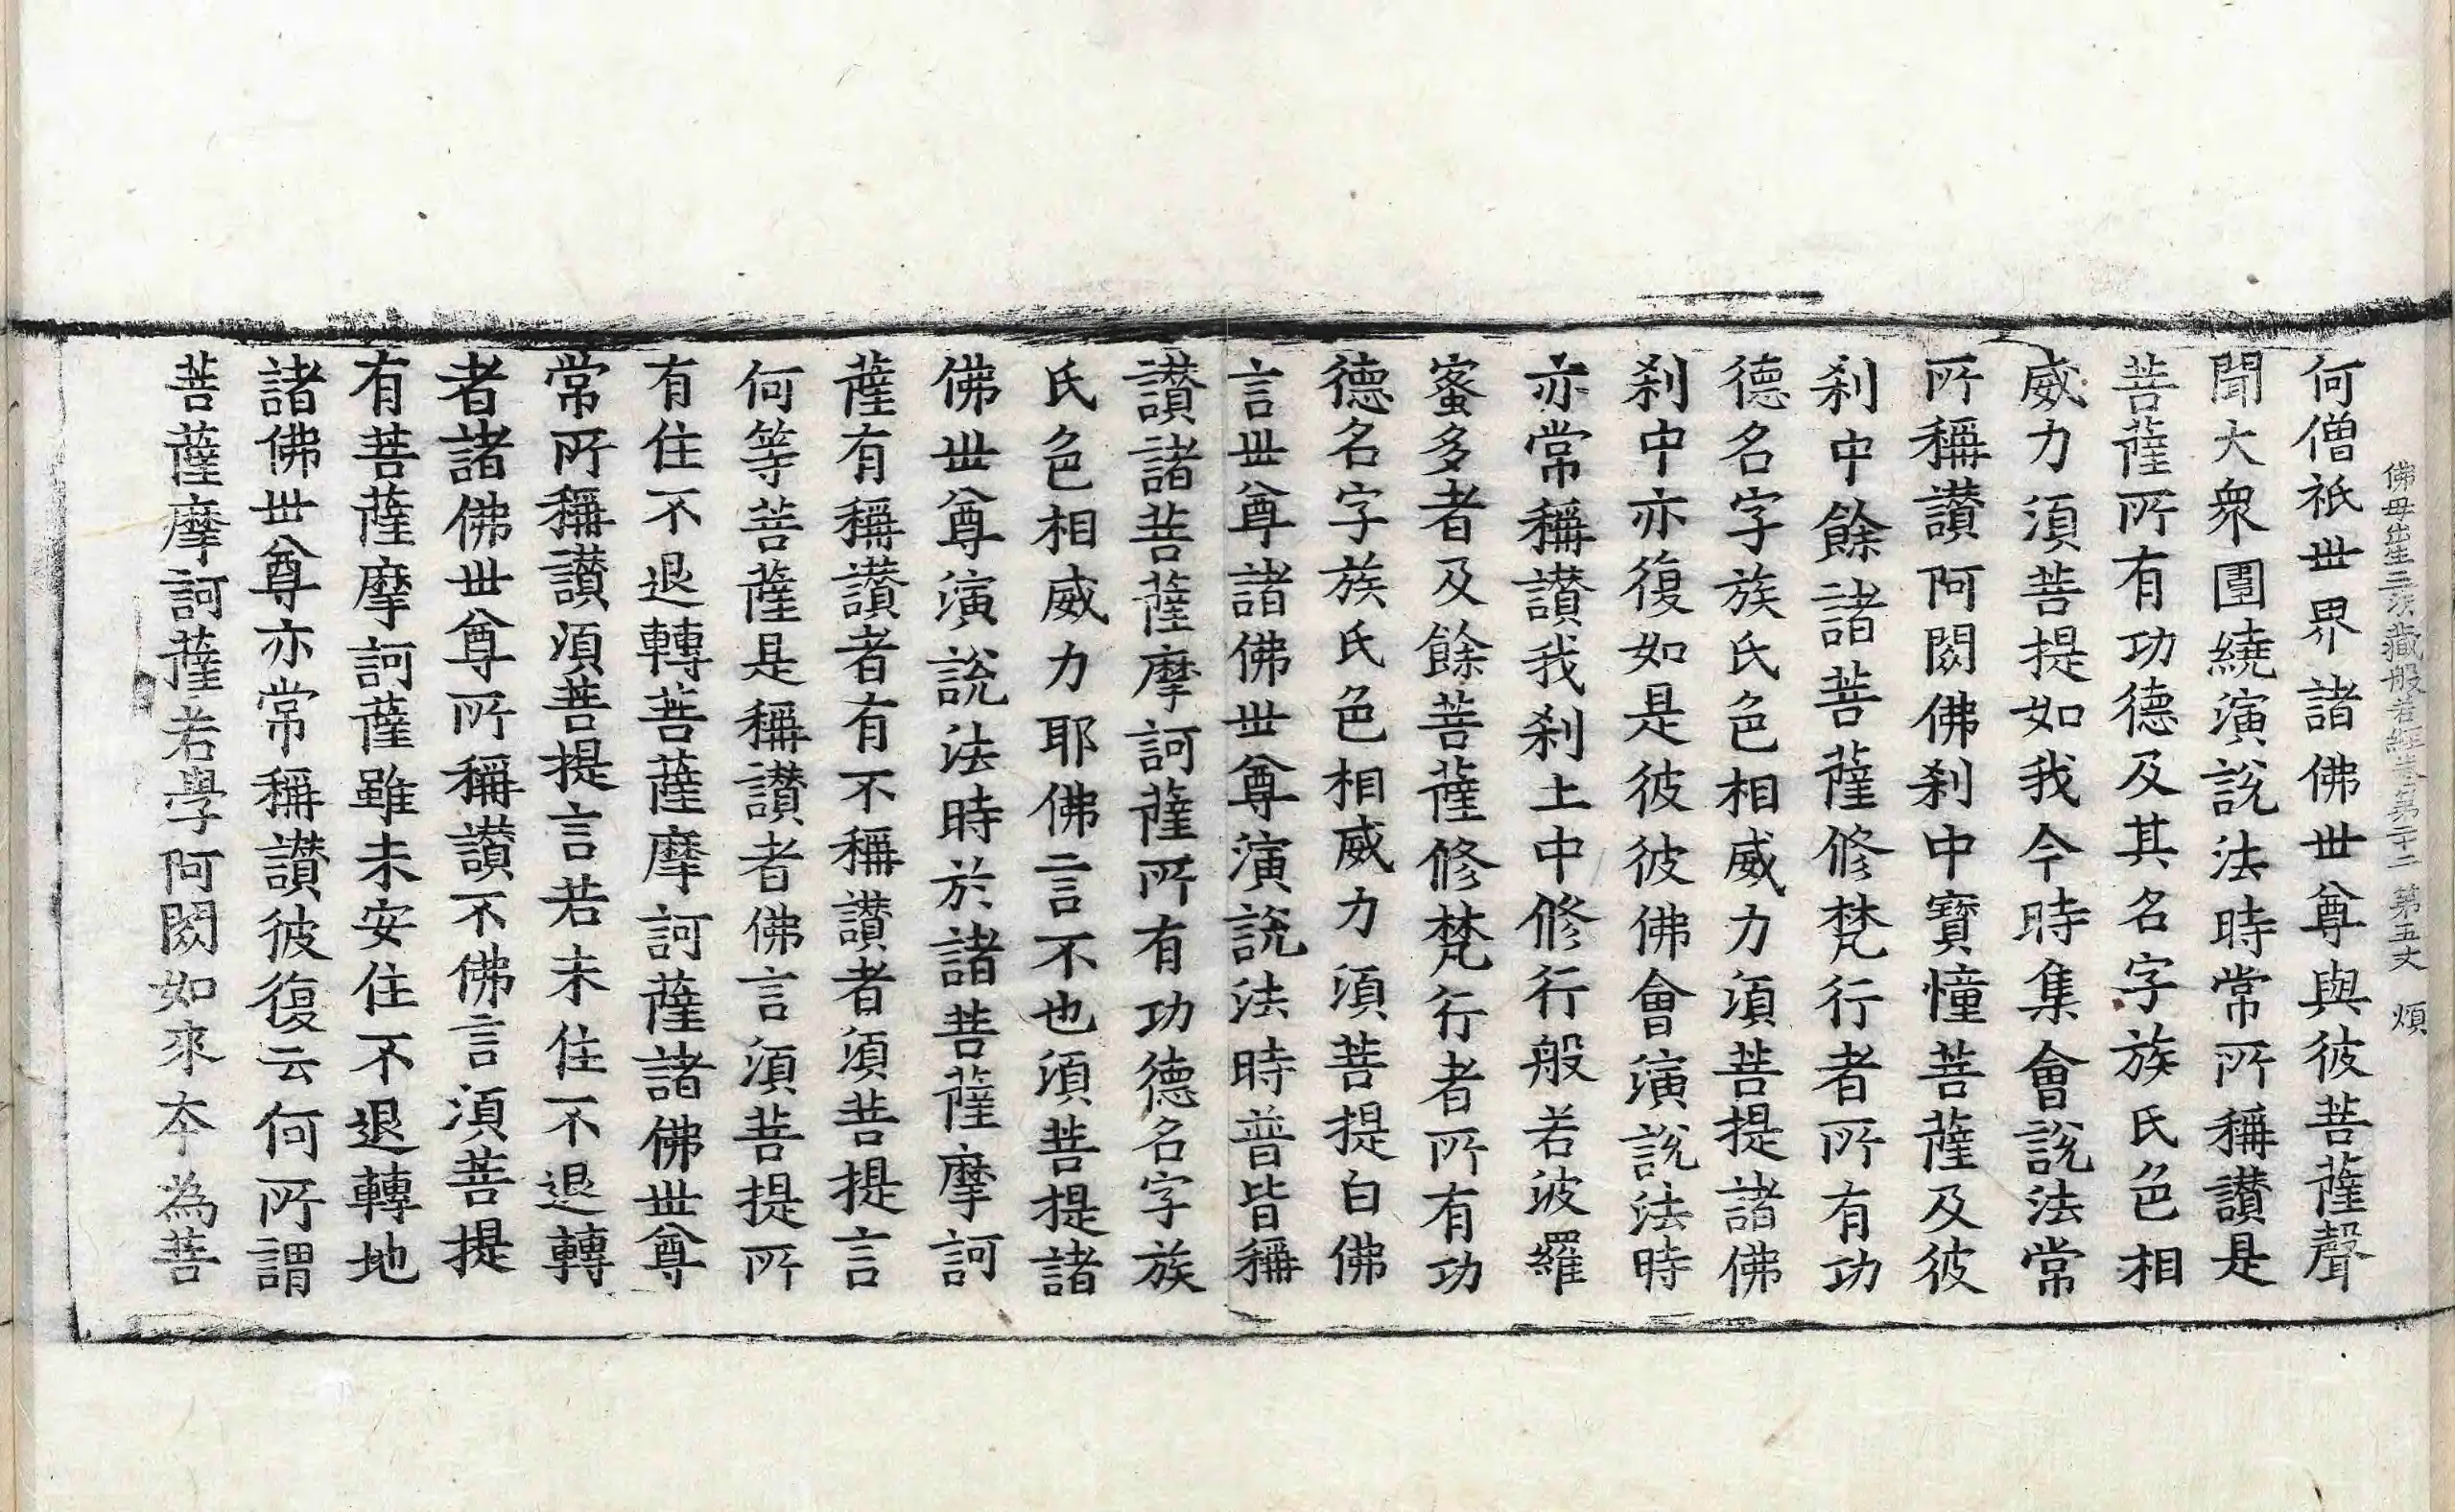 佛母出生三法藏般若經卷第二十二 第五丈 煩
何僧祇世界諸佛世尊與彼菩薩聲
聞大衆圍繞演說法時常所稱讃是
菩薩所有功德及其名字族氏色相
威力須菩提如我今時集會說法常
所稱讃阿閦佛刹中寶幢菩薩及彼
刹中餘諸菩薩修梵行者所有功
德名字族氏色相威力須菩提諸佛
刹中亦復如是彼彼佛會演說法時
亦常稱讃我刹土中修行般若波羅
蜜多者及餘菩薩修梵行者所有功
德名字族氏色相威力須菩提白佛
言世尊諸佛世尊演說法時普皆稱
讃諸菩薩摩訶薩所有功德名字族
氏色相威力耶佛言不也須菩提諸
佛世尊演說法時於諸菩薩摩訶
薩有稱讃者有不稱讃者須菩提言
何等菩薩是稱讃者佛言須菩提所
有住不退轉菩薩摩訶薩諸佛世尊
常所稱讃須菩提言若未住不退轉
者諸佛世尊所稱讃不佛言須菩提
有菩薩摩訶薩雖未安住不退轉地
諸佛世尊亦常稱讃彼復云何所謂
菩薩摩訶薩若學阿閦如來本為菩